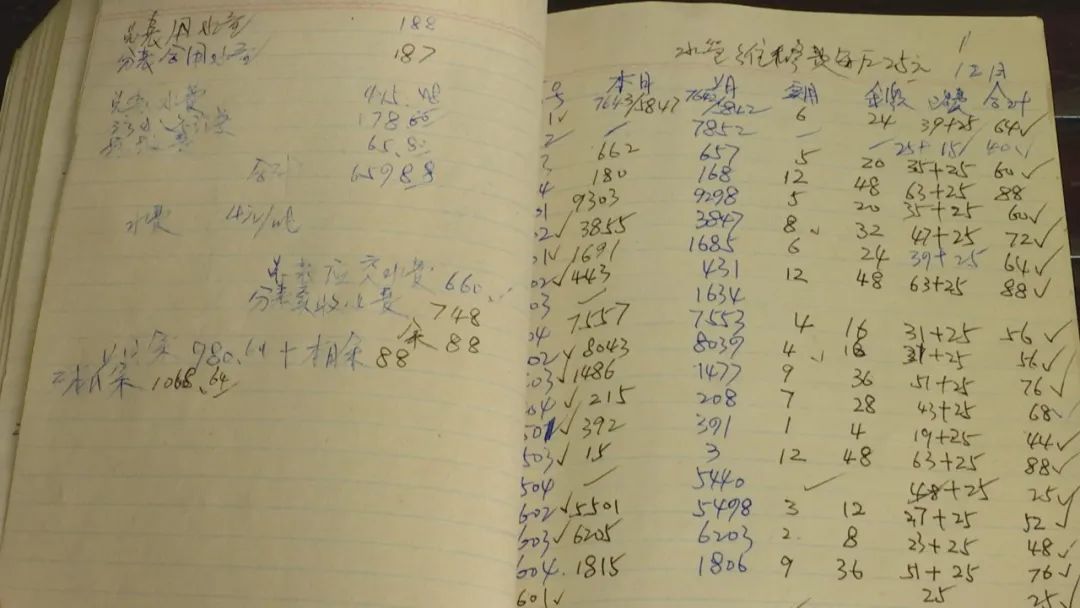 总表用水量 188
分表合用水量 187
总表水费 415.48
178.60
65.80
合计 659.88
水费 4元/吨
总表应交水费 660
分表实收水费 748
余 88
上月余 980.64 + 本月余 88
= 本月余 1068.64
水管维修费每户25元 12月
号 本月 上月 实用 金额 水费 合计
7643/5847 7642/5842 6 24 39+25 64✓
7852 25+15 40✓
662 657 5 20 35+25 60✓
180 168 12 48 63+25 88
9303 9298 5 20 35+25 60✓
02✓ 3855 3847 8 32 47+25 72✓
01✓ 1691 1685 6 24 39+25 64✓
02✓ 443 431 12 48 63+25 88✓
03 1634
04 7557 7553 4 16 31+25 56✓
02✓ 8043 8039 4 16 31+25 56✓
03✓ 1486 1477 9 36 51+25 76✓
04✓ 215 208 7 28 43+25 68✓
501✓ 392 391 1 4 19+25 44✓
503✓ 15 3 12 48 63+25 88✓
504 5440 25 25✓
602✓ 5501 5498 3 12 27+25 52✓
603✓ 6205 6203 2 8 23+25 48✓
604 1815 1806 9 36 51+25 76✓
601✓ 25 25✓